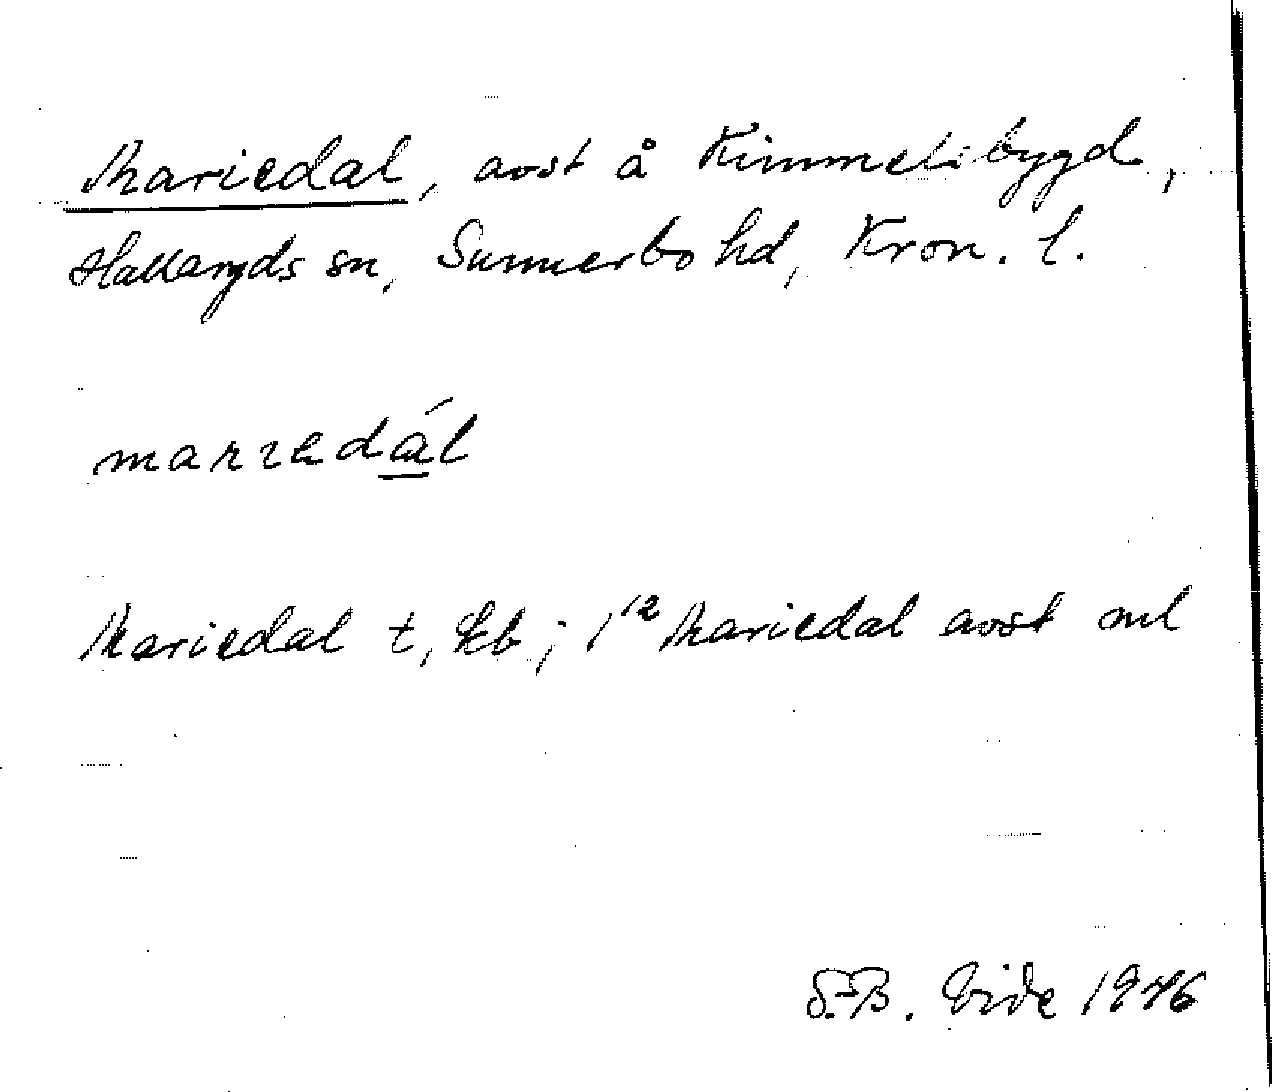 Mariedal, avst å Kimmelsbygd,
Hallaryds sn, Sunnerbo hd, Kron. l.
marıedál
Mariedal t, kb; 1¹² Mariedal avst ml
S.-B. Vide 1946